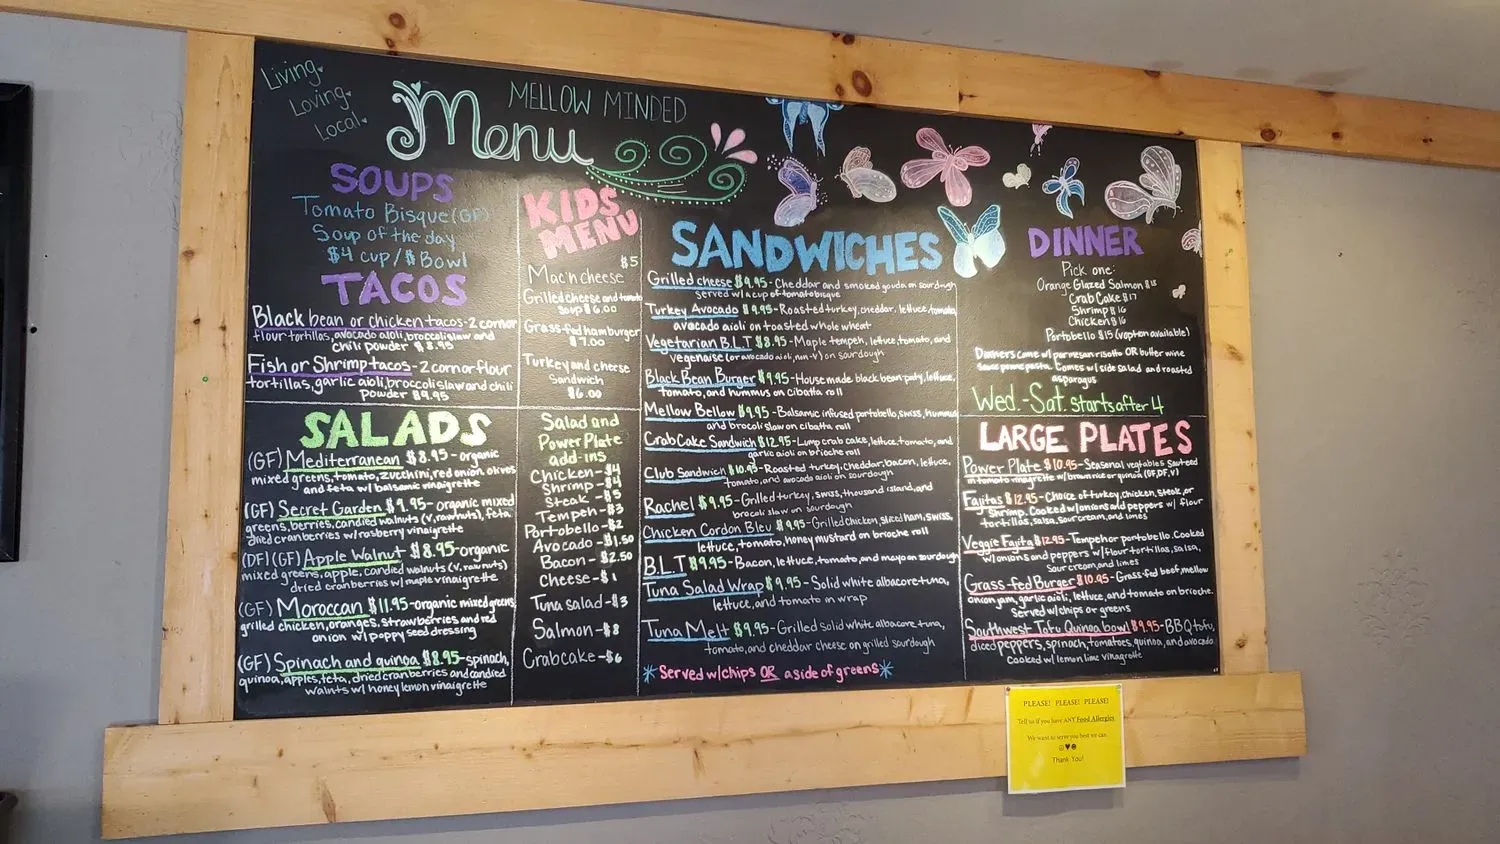 Living
Loving
Local
Menu
MELLOW MINDED
SOUPS
Tomato Bisque (GF)
Soup of the day
$4 cup / $ Bowl
TACOS
Black bean or chicken tacos - 2 corn or
flour tortillas, avocado aioli, broccoli slaw and
chili powder $8.95
Fish or Shrimp tacos - 2 corn or flour
tortillas, garlic aioli, broccoli slaw and chili
powder $9.95
SALADS
(GF) Mediterranean $8.95 - organic
mixed greens, tomato, zucchini, red onion, olives
and feta w/ balsamic vinaigrette
(GF) Secret Garden $9.95 - organic mixed
greens, berries, candied walnuts (v, raw nuts), feta
dried cranberries w/ rasberry vinaigrette
(DF) (GF) Apple Walnut $8.95 - organic
mixed greens, apple, candied walnuts (v, raw nuts)
dried cranberries w/ maple vinaigrette
(GF) Moroccan $11.95 - organic mixed greens
grilled chicken, oranges, strawberries and red
onion w/ poppy seed dressing
(GF) Spinach and quinoa $8.95 - spinach,
quinoa, apples, feta, dried cranberries and candied
walnuts w/ honey lemon vinaigrette
KIDS
MENU
$5
Mac'n cheese
Grilled cheese and tomato
soup $6.00
Grass-fed hamburger
$7.00
Turkey and cheese
Sandwich
$6.00
Salad and
Power Plate
add-ins
Chicken - $4
Shrimp - $4
Steak - $5
Tempeh - $3
Portobello - $2
Avocado - $1.50
Bacon - $2.50
Cheese - $1
Tuna salad - $3
Salmon - $8
Crabcake - $6
SANDWICHES
Grilled cheese $9.95 - Cheddar and smoked gouda on sourdough
served w/ a cup of tomato bisque
Turkey Avocado $9.95 - Roasted turkey, cheddar, lettuce, tomato,
avocado aioli on toasted whole wheat
Vegetarian B.L.T $8.95 - Maple tempeh, lettuce, tomato, and
vegenaise (or avocado aioli, non-v) on sourdough
Black Bean Burger $9.95 - House made black bean patty, lettuce,
tomato, and hummus on cibatta roll
Mellow Bellow $9.95 - Balsamic infused portobello, swiss, hummus
and brocoli slaw on cibatta roll
Crab Cake Sandwich $12.95 - Lump crab cake, lettuce, tomato, and
garlic aioli on brioche roll
Club Sandwich $10.95 - Roasted turkey, cheddar, bacon, lettuce,
tomato, and avocado aioli on sourdough
Rachel $9.95 - Grilled turkey, swiss, thousand island, and
brocoli slaw on sourdough
Chicken Cordon Bleu $9.95 - Grilled chicken, sliced ham, swiss,
lettuce, tomato, honey mustard on brioche roll
B.L.T $9.95 - Bacon, lettuce, tomato, and mayo on sourdough
Tuna Salad Wrap $9.95 - Solid white albacore tuna,
lettuce, and tomato in wrap
Tuna Melt $9.95 - Grilled solid white albacore tuna,
tomato, and cheddar cheese on grilled sourdough
*Served w/chips OR a side of greens*
DINNER
Pick one:
Orange Glazed Salmon $18
Crab Cake $17
Shrimp $16
Chicken $16
Portobello $15 (v option available)
Dinners come w/ parmesan risotto OR butter wine
sauce penne pasta. Comes w/ side salad and roasted
asparagus
Wed.-Sat. starts after 4
LARGE PLATES
Power Plate $10.95 - Seasonal vegetables sauteed
in tomato vinagrette w/ brown rice or quinoa (GF, DF, V)
Fajitas $12.95 - Choice of turkey, chicken, steak, or
Shrimp. Cooked w/ onions and peppers w/ flour
tortillas, salsa, sour cream, and limes
Veggie Fajita $12.95 - Tempeh or portobello. Cooked
w/ onions and peppers w/ flour tortillas, salsa,
sour cream, and limes
Grass-fed Burger $10.95 - Grass-fed beef, mellow
onion jam, garlic aioli, lettuce, and tomato on brioche.
Served w/chips or greens
Southwest Tofu Quinoa bowl $9.95 - BBQ tofu,
diced peppers, spinach, tomatoes, quinoa, and avocado
cooked w/ lemon lime vinagrette
PLEASE! PLEASE! PLEASE!
Tell us if you have ANY Food Allergies
We want to serve you best we can.
☺♥☻
Thank You!